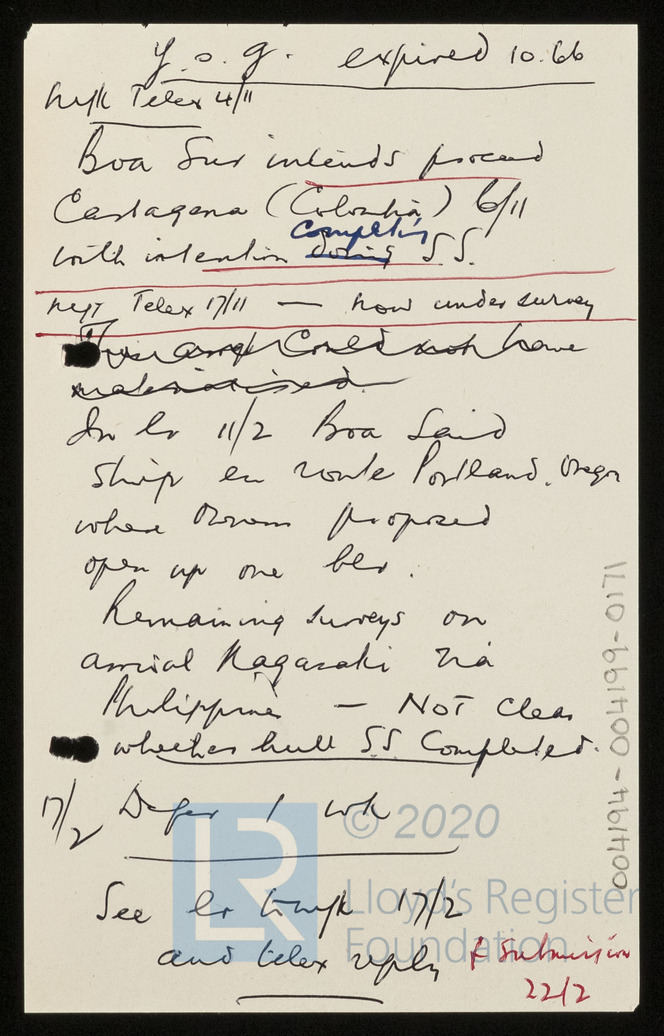 y.o.g. expired 10.66
Telex 4/11
Boa Sur intends proceed
Cartagena (Colombia) 6/11
completing
with intention doing S.S.
Telex 17/11 — now under survey
could not have
materialised.
In lr 11/2 Boa said
ship en route Portland, Oregon
where Owners proposed
open up one blr.
Remaining surveys on
arrival Nagasaki via
Philippines — NOT clear
whether hull SS Completed.
17/2 Defer 1 wk
© 2020
LR
Lloyd's Register
Foundation
See lr to 17/2
and telex reply & Submission
22/2
004194-004199-0171